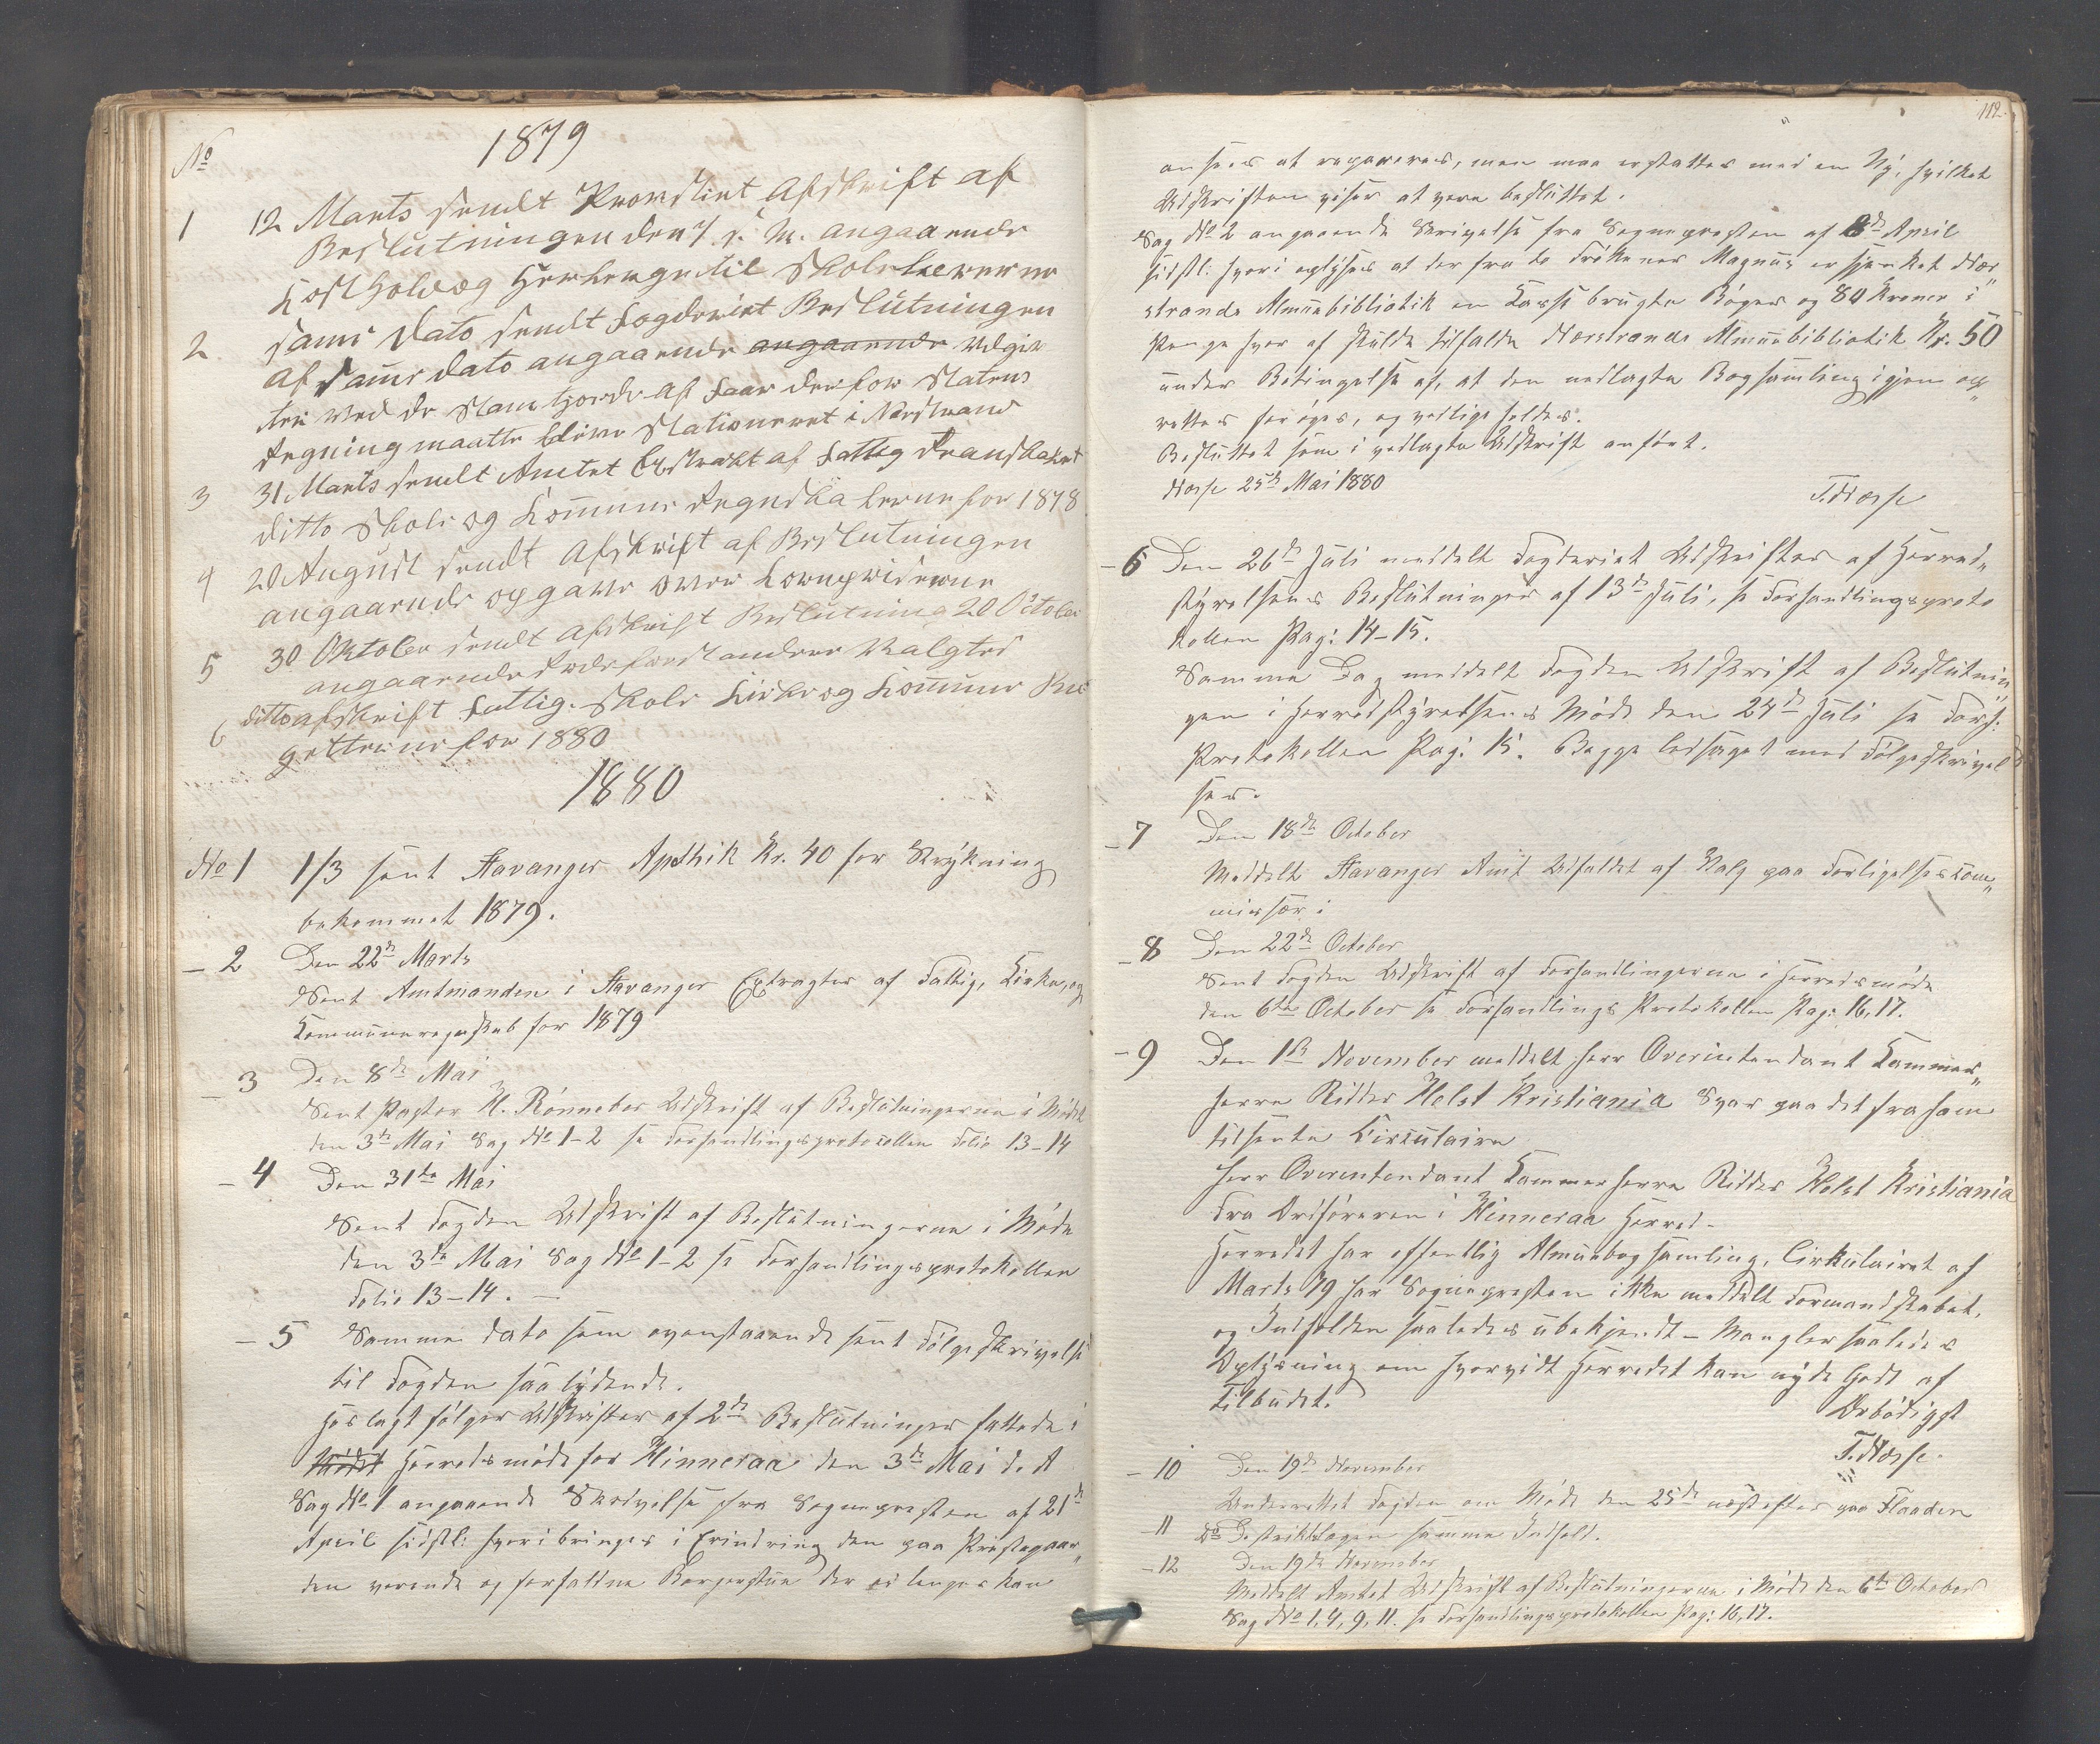 No 1879
1 12 Marts sendt Provstiet Afskrift af
Beslutningen den 7 d. M. angaaende
Kosthold og Herberge til Skolelærerne
2 Samme Dato sendt Fogderiet Beslutningen
af samme dato angaaende angaaende Udgif
ten ved de Stamhjorde af Faar der for Statens
Regning maatte blive Stationeret i Nærstrand
3 31 Marts sendt Amtet Extrakt af Fattig
ditto Skole og Kommune Regnskaberne for 1878
4 20 August sendt Afskrift af Beslutningen
angaaende opgave over Kornpriserne
5 30 Oktober sendt Afskrift Beslutning 20 October
angaaende Valgtes
6 ditto afskrift Fattig- Skole Kirke og Kommune Bud
getterne for 1880
1880
No 1 1/3 sent Stavanger Apothik Kr. 40 for Strykning
bekommet 1879.
- 2 Den 22de Marts
Sent Amtmanden i Stavanger Extragter af Fattig, Kirke, og
Kommuneregnskab for 1879
- 3 Den 8de Mai
Sent Pastor H. Rønneber Udskrift af Beslutningerne i Mødet
den 3de Mai Sag No 1-2 se Forhandlingsprotocollen Folio 13-14
- 4 Den 31te Mai
Sent Fogden Udskrift af Beslutningerne i Møde
den 3de Mai Sag No 1-2 se Forhandlingsprotokollen
Folio 13-14. -
- 5 Samme dato som ovenstaaende sent Følgeskrivelse
til Fogden saa lydende.
Hoslagt følger Udskrifter af 2de Beslutninger fattede i
Mødet Herredsmøde for Hinneraa den 3de Mai d. A
Sag No 1 angaaende Skrivelse fra Sognepresten af 21de
April sidstl: hvori bringes i Erindring den paa Prestegaar„
den værende og forfaldne Borgerstue der ei lenger kan
112.
ansees at repareres, men maa erstattes med en Ny, hvilket
Udskriften viser at være besluttet.
Sag No 2 angaaende Skrivelse fra Sognepresten af 8de April
sidstl: hvori oplyses at der fra to Frøkener Magnus er sjenket Nær„
strands Almuebibliotik en Kasse brugte Bøger og 80 Kroner i
Penge hvor af skulde tilfalde Nærstrands Almuebibliotik Kr. 50
under Betingelse af, at den nedlagte Bogsamling igjen op„
rettes forøges, og vedligeholdes.
Besluttet som i vedlagte Udskrift anført.
Næsse 25de Mai 1880
T. Næsse
- 6 Den 26de Juli meddelt Fogderiet Udskrifter af Herred„
styrelsens Beslutninger af 13de Juli, se Forhandlingsproto
kollen Pag: 14-15.
Samme Dag meddelt Fogden Udskrift af Beslutnin
gen i Herredstyrelsens Møde den 24de Juli se Forh:
Protokollen Pag: 15. Begge ledsaget med Følgeskrivel
ser.
- 7 Den 18de October
Meddelt Stavanger Amt Udfaldet af Valg paa Forligelseskom„
missær:
- 8 Den 22de October
Sent Fogden Udskrift af Forhandlingerne i Herredsmøde
den 6te October se Forhandlings Protokollen Pag: 16, 17.
- 9 Den 1ste November meddelt Herr Overintendant Kammer„
herre Ridder Holst Kristiania Svar paa det fra ham
tilsente Cirkulaire
Herr Overentendant Kammerherre Ridder Holst Kristiania
Fra Ordføreren i Hinneraa Herred-
Herredet har offentlig Almuebogsamling. Cirkulairet af
Marts 79 har Sognepresten ikke meddelt Formandskabet,
og Indholden saaledes ubekjendt - Mangler saaledes
Oplysning om hvorvidt Herredet kan nyde Godt af
Tilbudet.
Ærbødigst
T. Næsse.
- 10 Den 19de November
Underrettet Fogden om Møde den 25de næstefter paa Flaaden
- 11 do Destriktslægen samme Indhold.
- 12 Den 19de November
Meddelt Amtet Udskrift af Beslutningerne i Møde den 6te October
Sag No 1, 4, 9, 11. se Forhandlingsprotokollen Pag: 16, 17.